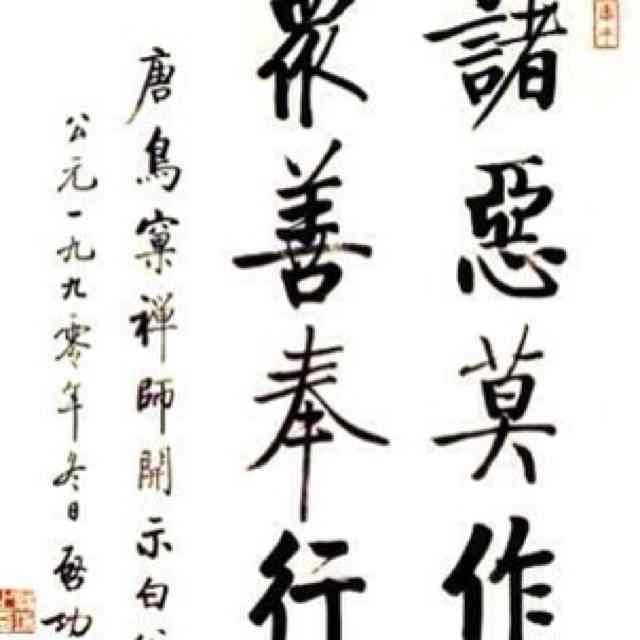 諸惡莫作
眾善奉行
唐鳥窠禅師開示白
公元一九九零年冬日啓功